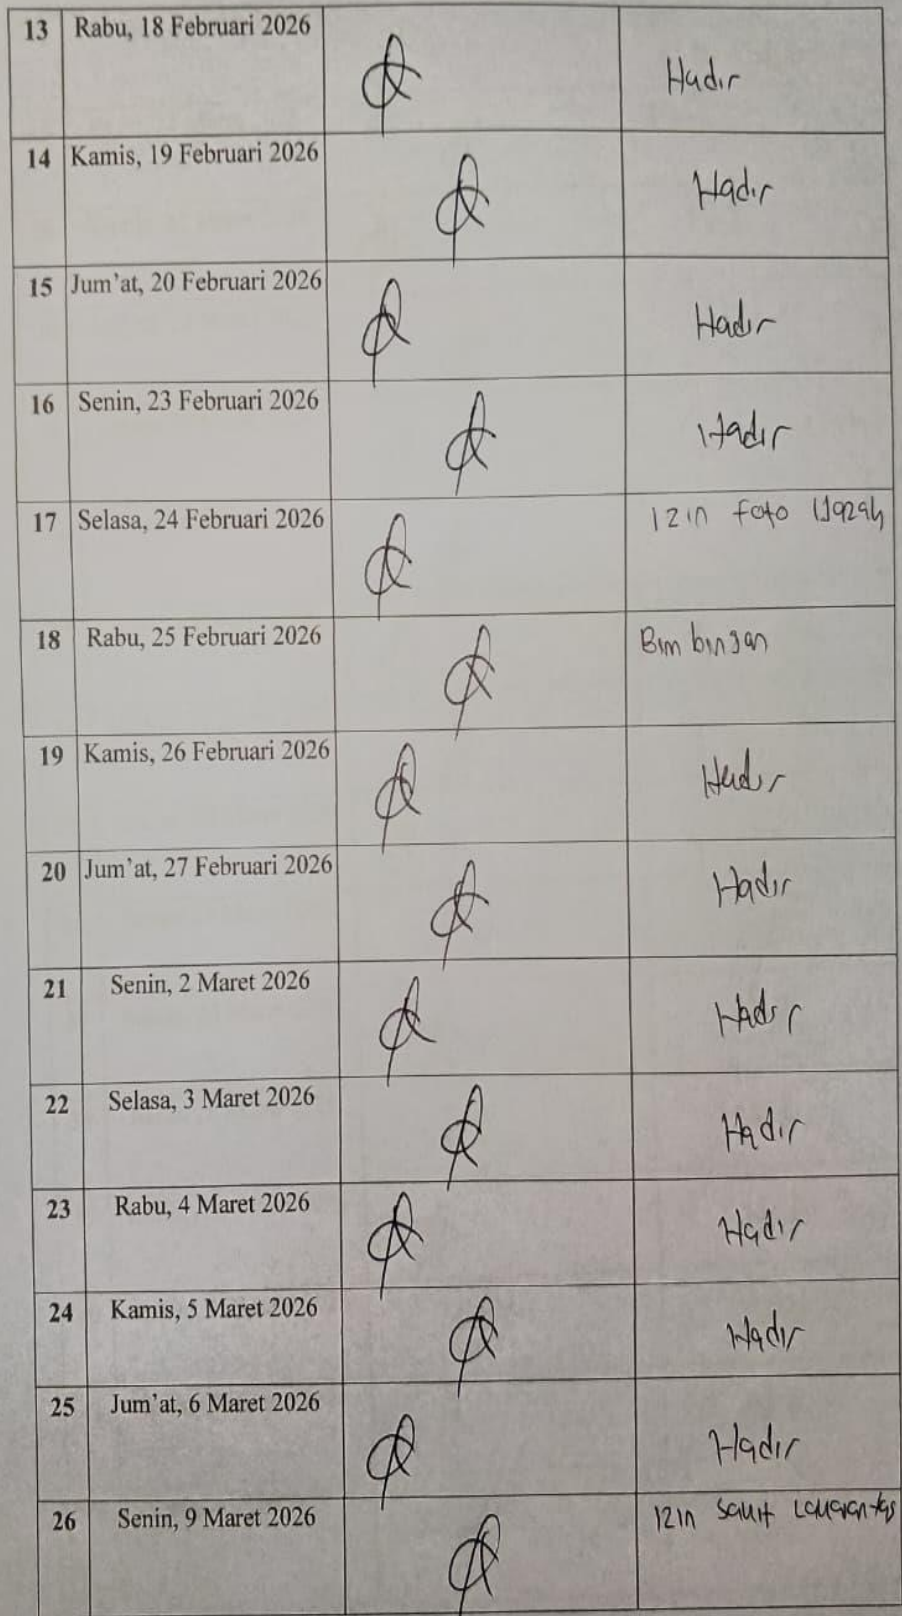 13 Rabu, 18 Februari 2026 Hadir
14 Kamis, 19 Februari 2026 Hadir
15 Jum'at, 20 Februari 2026 Hadir
16 Senin, 23 Februari 2026 Hadir
17 Selasa, 24 Februari 2026 Izin foto Ijazah
18 Rabu, 25 Februari 2026 Bimbingan
19 Kamis, 26 Februari 2026 Hadir
20 Jum'at, 27 Februari 2026 Hadir
21 Senin, 2 Maret 2026 Hadir
22 Selasa, 3 Maret 2026 Hadir
23 Rabu, 4 Maret 2026 Hadir
24 Kamis, 5 Maret 2026 Hadir
25 Jum'at, 6 Maret 2026 Hadir
26 Senin, 9 Maret 2026 Izin